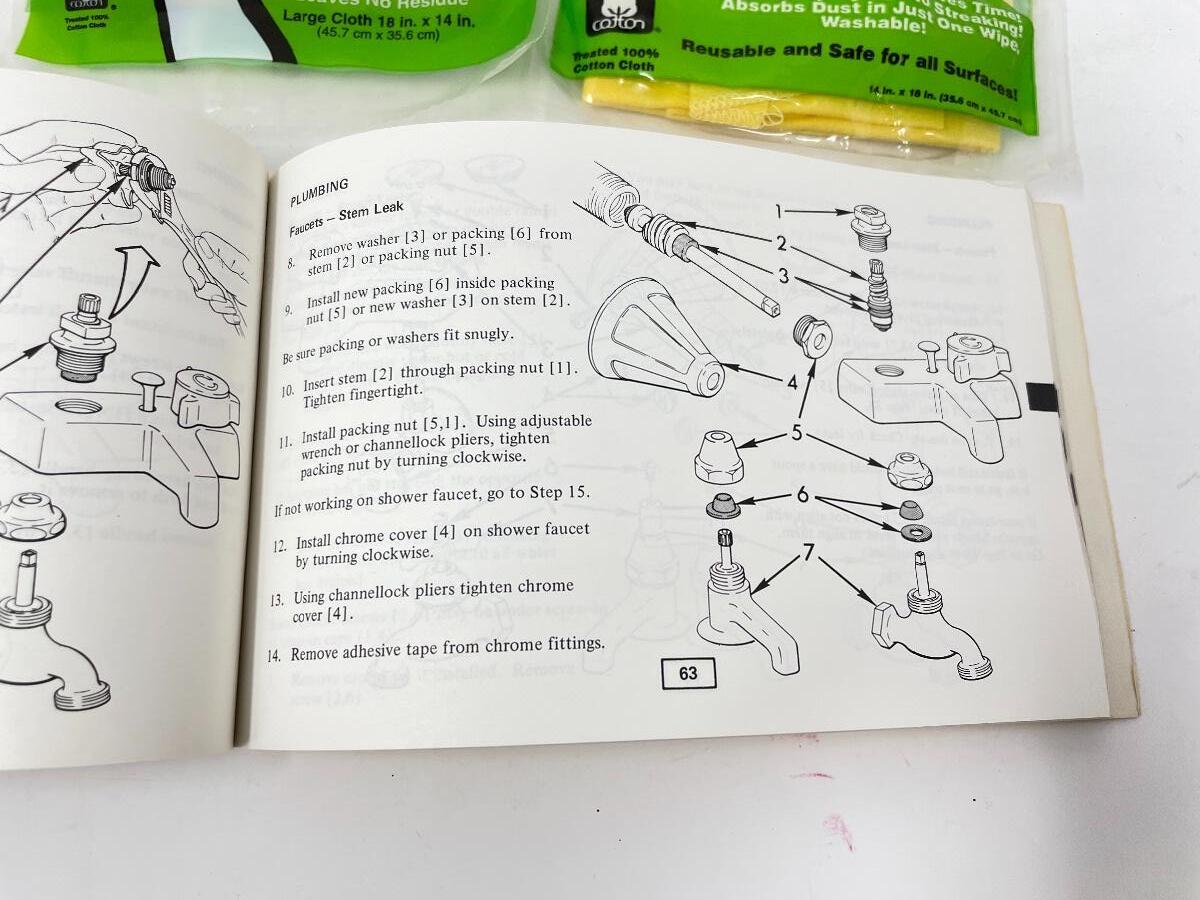 cotton
Treated 100%
Cotton Cloth
Leaves No Residue
Large Cloth 18 in. x 14 in.
(45.7 cm x 35.6 cm)
cotton
Treated 100%
Cotton Cloth
Time!
Streaking!
Absorbs Dust in Just One Wipe,
Washable!
Reusable and Safe for all Surfaces!
14 in. x 18 in. (35.6 cm x 45.7 cm)
PLUMBING
Faucets – Stem Leak
8. Remove washer [3] or packing [6] from
stem [2] or packing nut [5].
9. Install new packing [6] inside packing
nut [5] or new washer [3] on stem [2].
Be sure packing or washers fit snugly.
10. Insert stem [2] through packing nut [1].
Tighten fingertight.
11. Install packing nut [5,1]. Using adjustable
wrench or channellock pliers, tighten
packing nut by turning clockwise.
If not working on shower faucet, go to Step 15.
12. Install chrome cover [4] on shower faucet
by turning clockwise.
13. Using channellock pliers tighten chrome
cover [4].
14. Remove adhesive tape from chrome fittings.
1
2
3
4
5
6
7
63